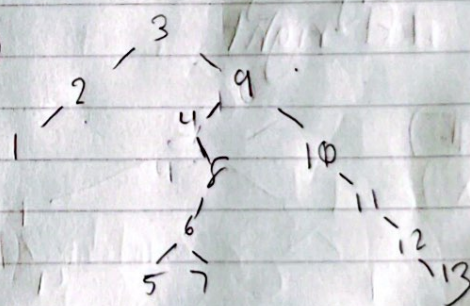 3
2 9
1 4 10
8 11
6 12
5 7 13